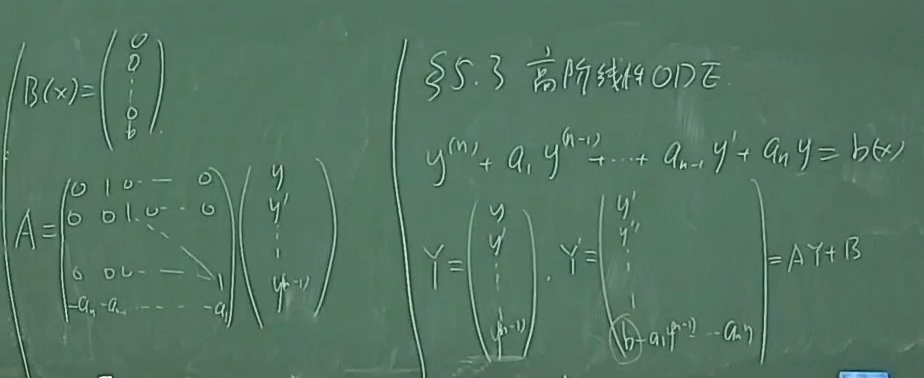 B(x)=(0 0 ⋮ 0 b).
A=(0 1 0 — — 0
0 0 1 0 - - 0
0 0 0 - — 1
-aₙ -aₙ₋₁ ---- -a₁)(y y' ⋮ y⁽ⁿ⁻¹⁾)
§5.3 高阶线性ODE.
y⁽ⁿ⁾+a₁y⁽ⁿ⁻¹⁾+⋯+aₙ₋₁y'+aₙy=b(x)
Y=(y y' ⋮ y⁽ⁿ⁻¹⁾), Y'=(y' y'' ⋮ b-a₁y⁽ⁿ⁻¹⁾-⋯-aₙy)=AY+B